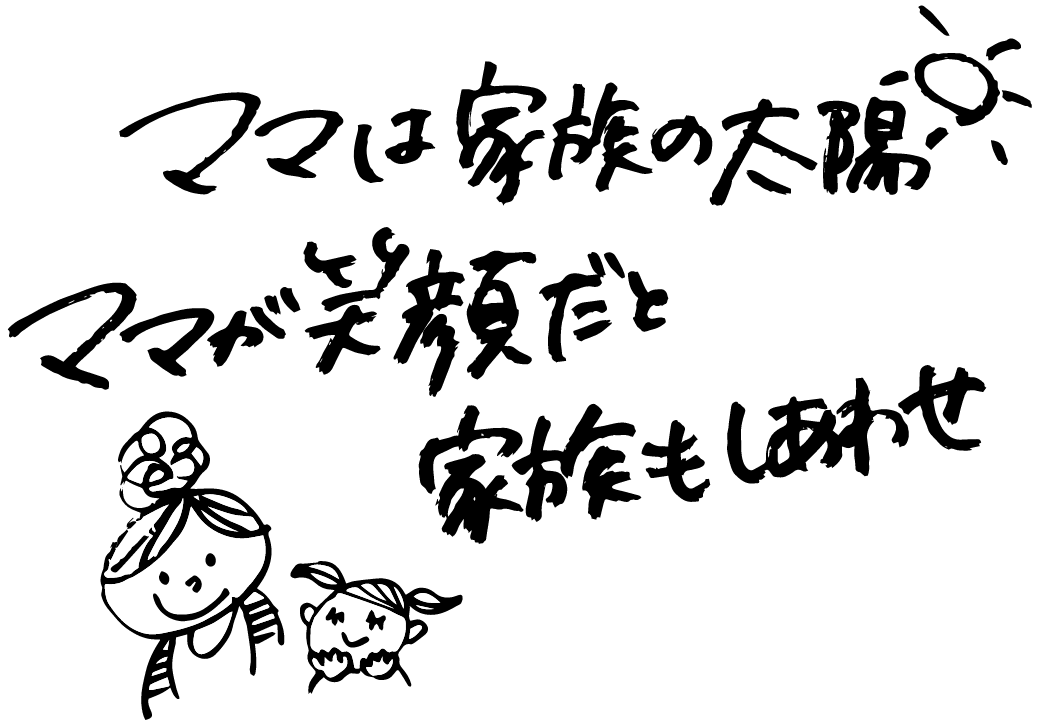 ママは家族の太陽
ママが笑顔だと
家族もしあわせ